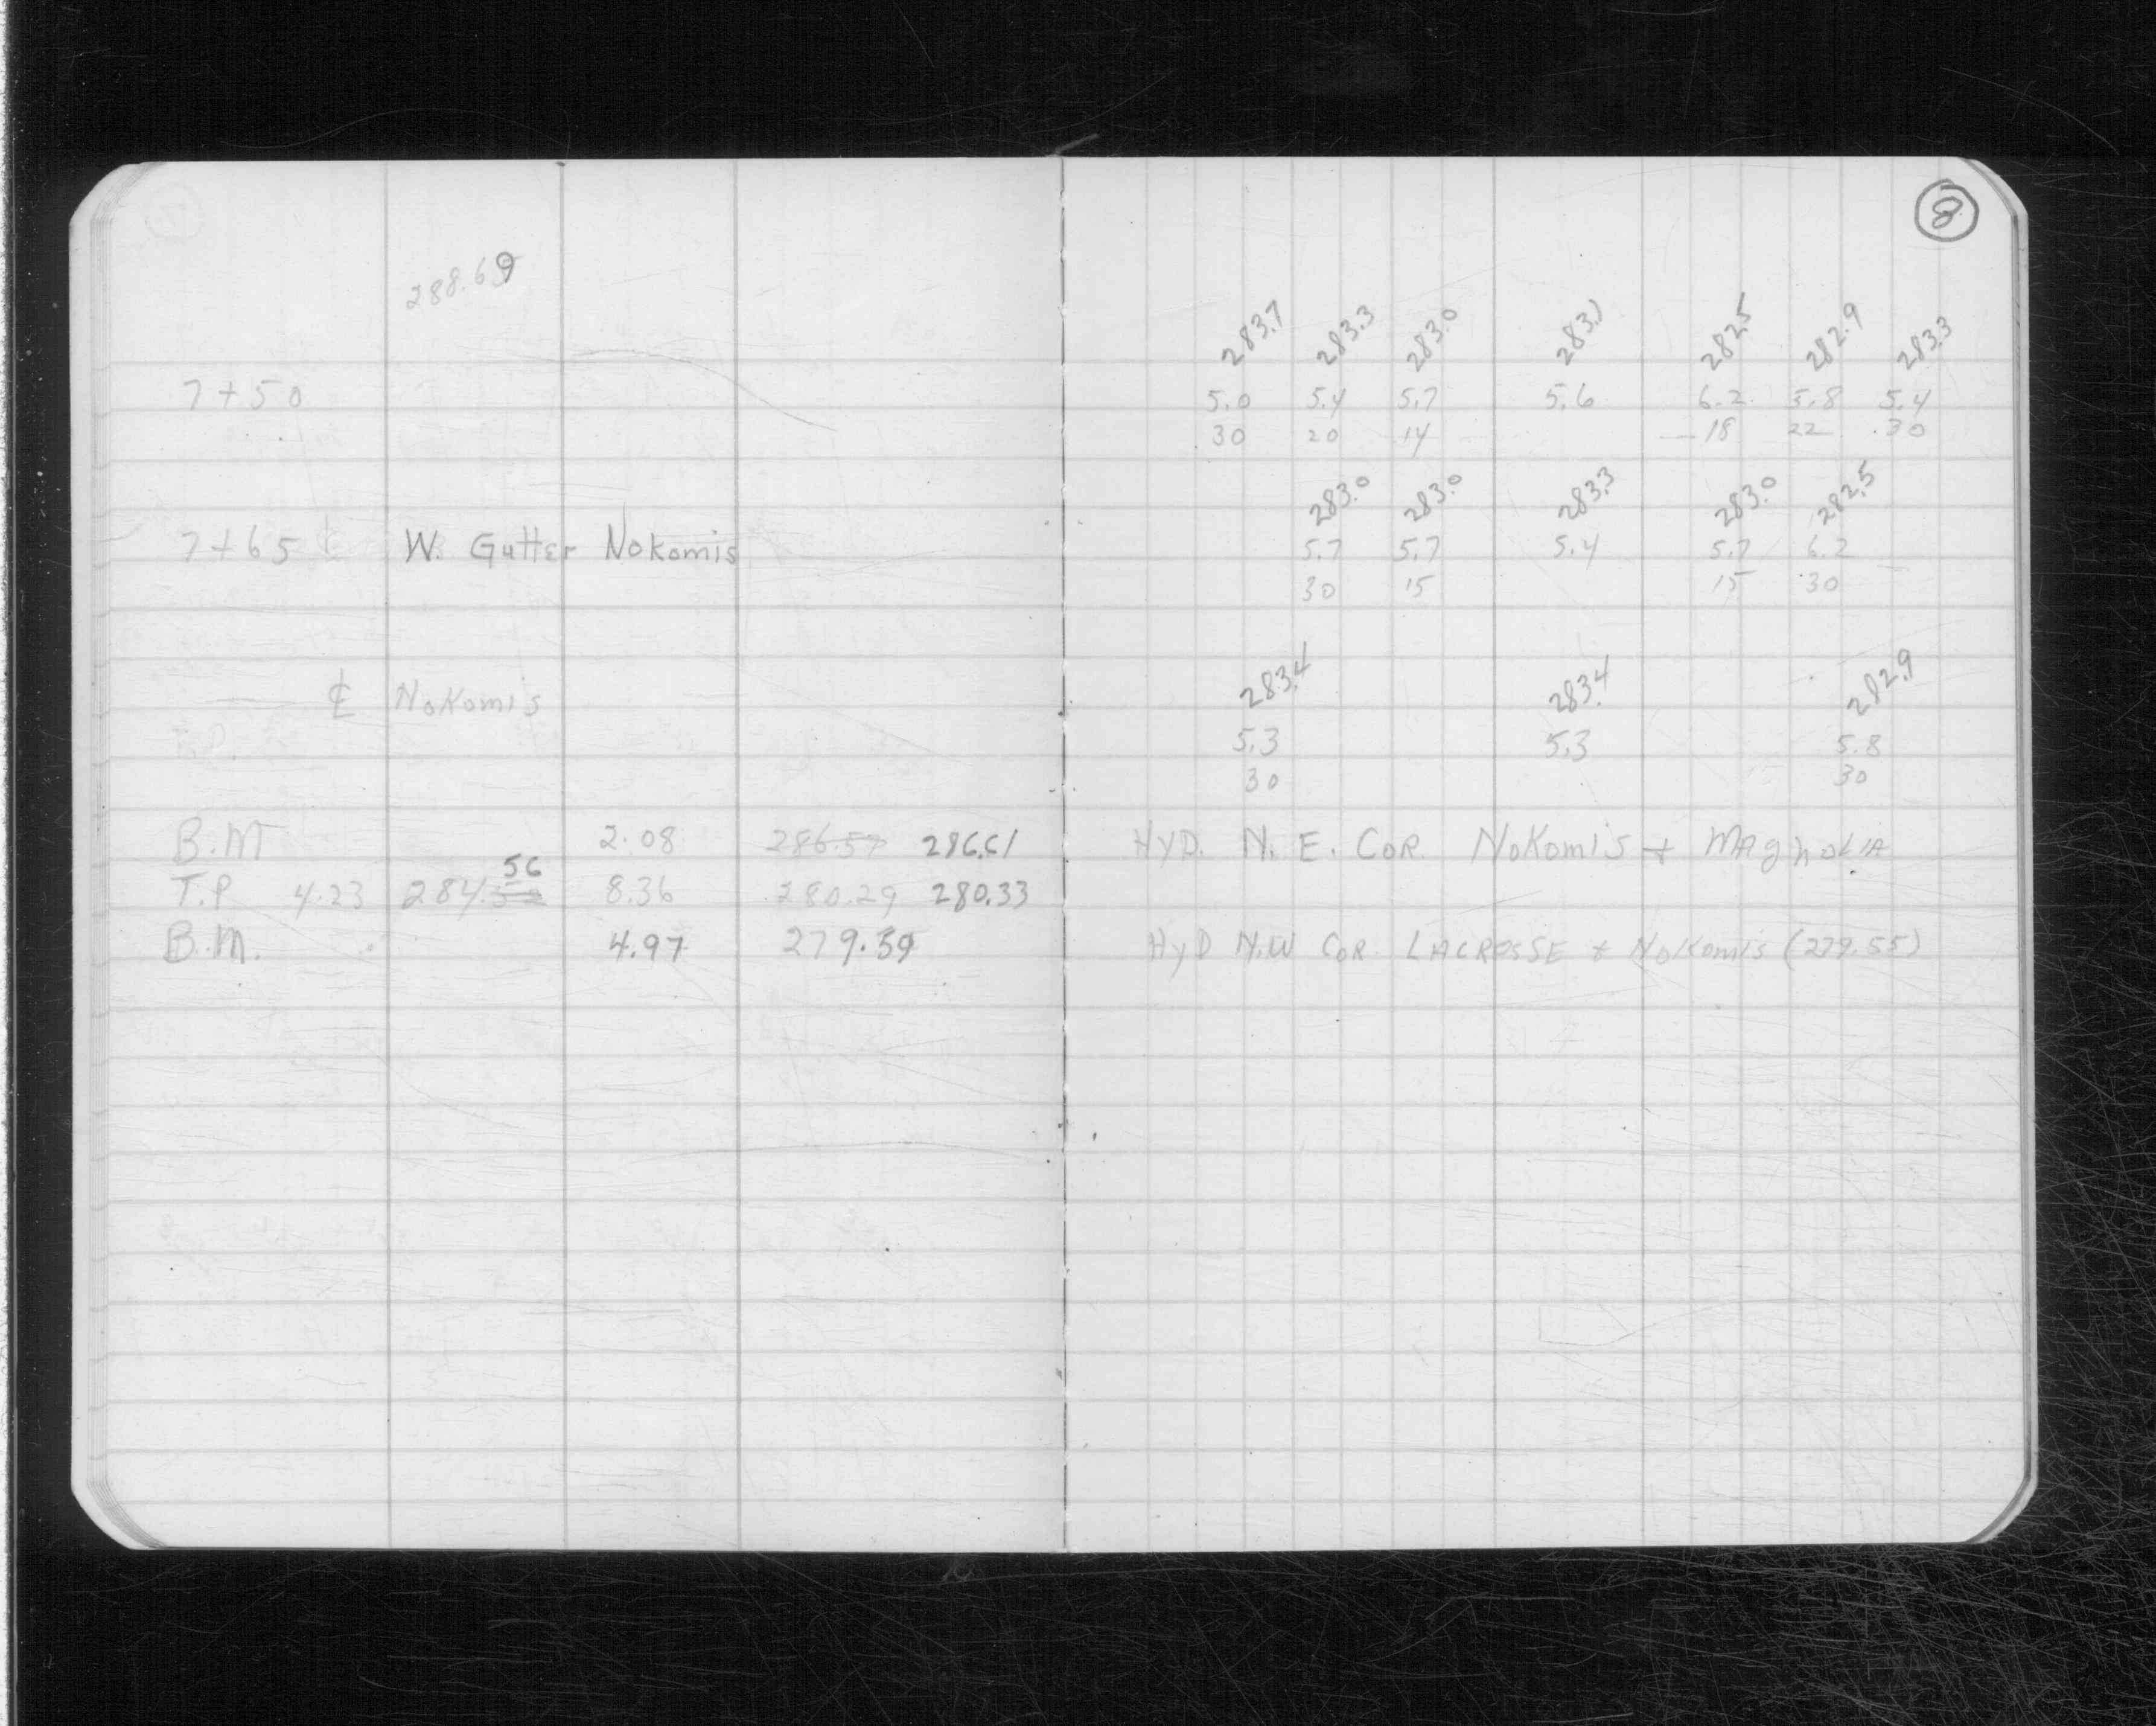 8
288.69
283.7 283.3 283.0 283.1 282.5 282.9 283.3
7+50 5.0 5.4 5.7 5.6 6.2 5.8 5.4
30 20 14 18 22 30
283.0 283.0 283.3 283.0 282.5
7+65 W. Gutter Nokomis 5.7 5.7 5.4 5.7 6.2
30 15 15 30
283.4 283.4 282.9
℄ Nokomis
T.P. 5.3 5.3 5.8
30 30
B.M 2.08 286.57 286.61 HYD. N.E. COR. NOKOMIS + MAgnOLIA
56
T.P 4.23 284.52 8.36 280.29 280.33
B.M. 4.97 279.59 HyD N.W COR. LACROSSE + NOKOMIS (279.55)